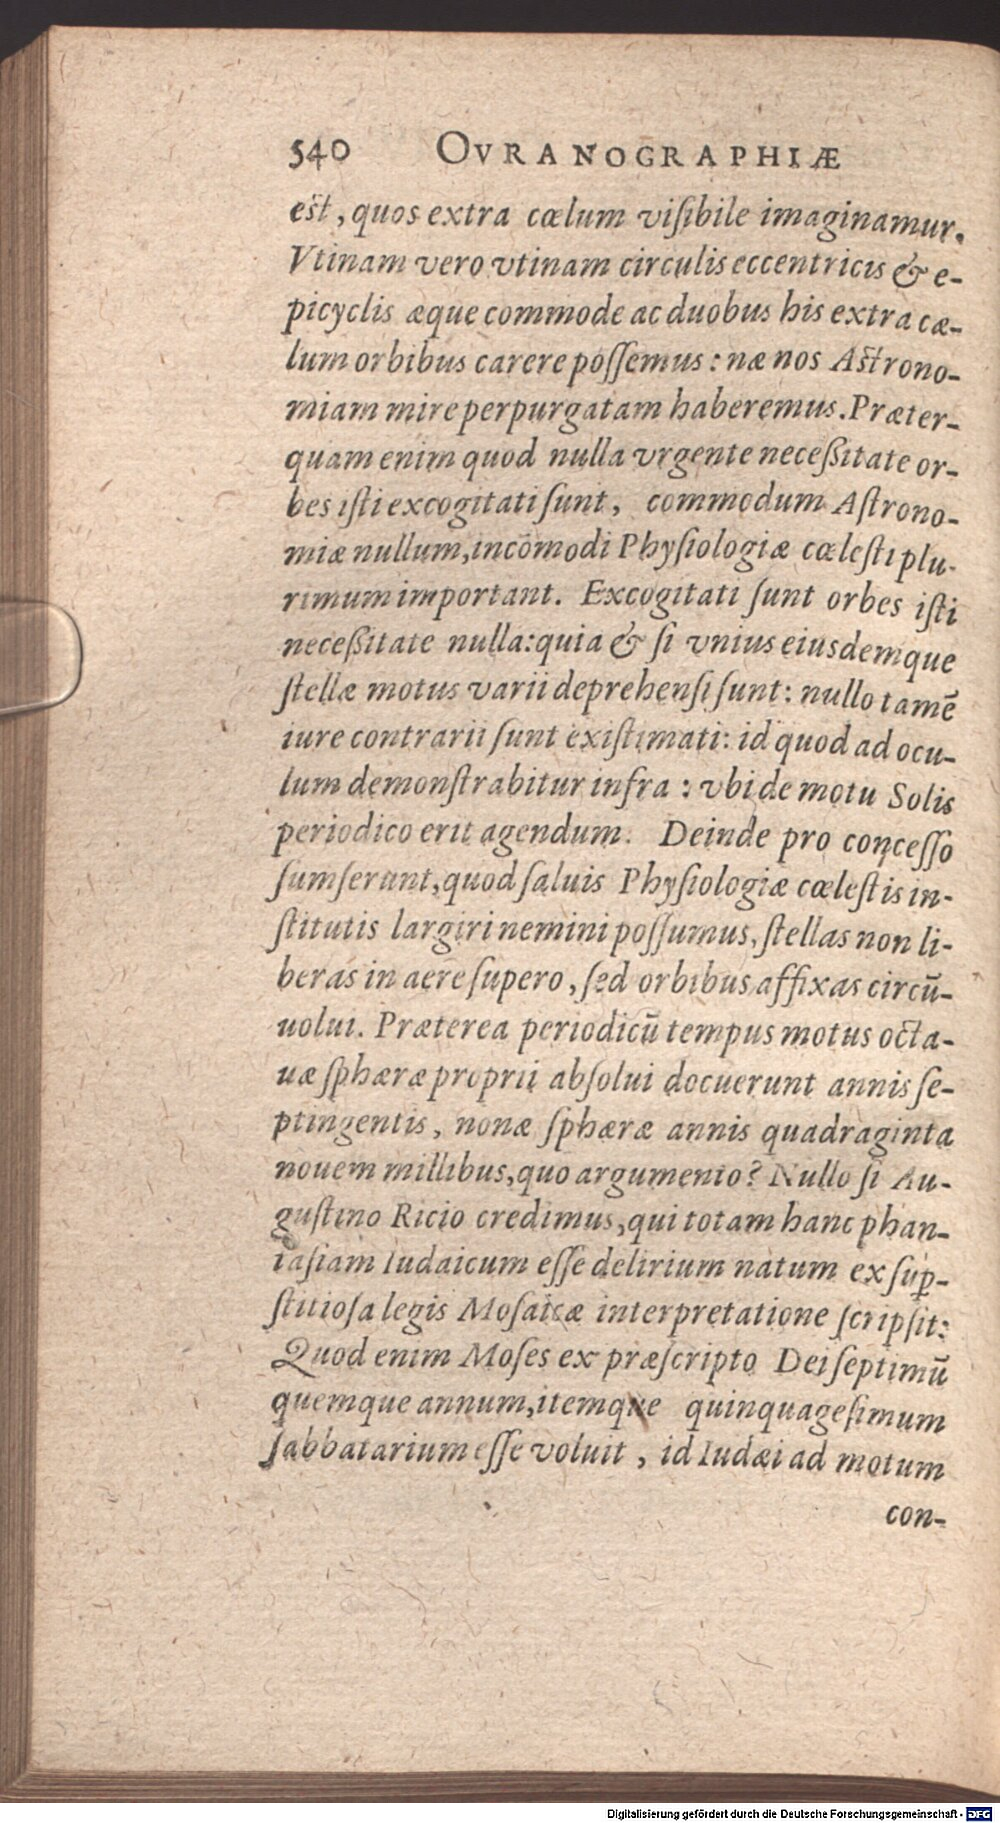 540 OVRANOGRAPHIÆ
est, quos extra cælum visibile imaginamur.
Vtinam vero vtinam circulis eccentricis & e-
picyclis æque commode ac duobus his extra cæ-
lum orbibus carere possemus: næ nos Astrono-
miam mire perpurgatam haberemus. Præter-
quam enim quod nulla vrgente necessitate or-
bes isti excogitati sunt, commodum Astrono-
miæ nullum, incōmodi Physiologiæ cælesti plu-
rimum important. Excogitati sunt orbes isti
necessitate nulla: quia & si vnius eiusdemque
stellæ motus varii deprehensi sunt: nullo tamē
iure contrarii sunt existimati: id quod ad ocu-
lum demonstrabitur infra: vbi de motu Solis
periodico erit agendum. Deinde pro concesso
sumserunt, quod saluis Physiologiæ cælestis in-
stitutis largiri nemini possumus, stellas non li-
beras in aere supero, sed orbibus affixas circū-
uolui. Præterea periodicū tempus motus octa-
uæ sphæræ proprii absolui docuerunt annis se-
ptingentis, nonæ sphæræ annis quadraginta
nouem millibus, quo argumento? Nullo si Au-
gustino Ricio credimus, qui totam hanc phan-
tasiam Iudaicum esse delirium natum ex sup̄-
stitiosa legis Mosaicæ interpretatione scripsit:
Quod enim Moses ex præscripto Dei septimū
quemque annum, itemque quinquagesimum
sabbatarium esse voluit, id Iudæi ad motum
con-
Digitalisierung gefördert durch die Deutsche Forschungsgemeinschaft - DFG